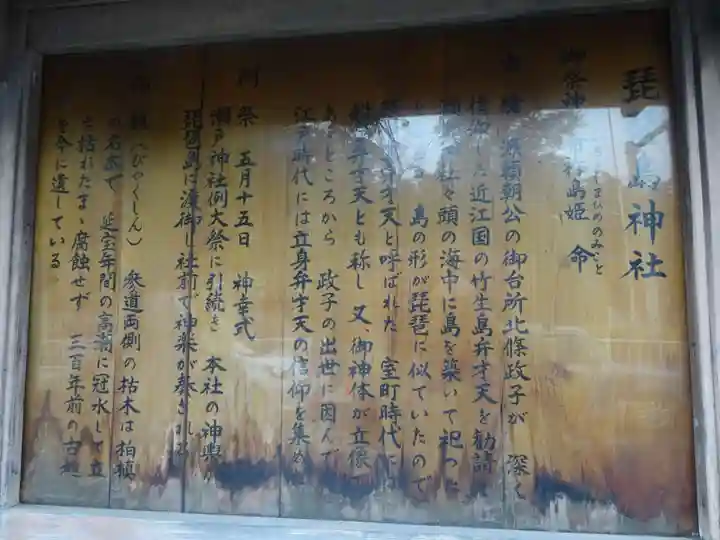 琵 島神社
御祭神 市杵島姫 命
しまひめのみこと
源頼朝公の御台所北條政子が 深く
信仰した近江国の竹生島弁才天を勧請
社々頭の海中に島を築いて祀った
島の形が琵琶に似ていたので
才天と呼ばれた 室町時代
弁才天とも称し 又、御神体が立像で
あるところから 政子の出世に因んで
江戸時代には立身弁才天の信仰を集めた
例祭 五月十五日 神幸式
瀬戸神社例大祭に引続き 本社の神輿が
琵琶島に渡御し社前で神楽が奏される
(びゃくしん) 参道両側の枯木は柏槙
の名木で 延宝年間の高潮に冠水して立
ち枯れたまゝ腐蝕せず 三百年前の古
を今に遺している。